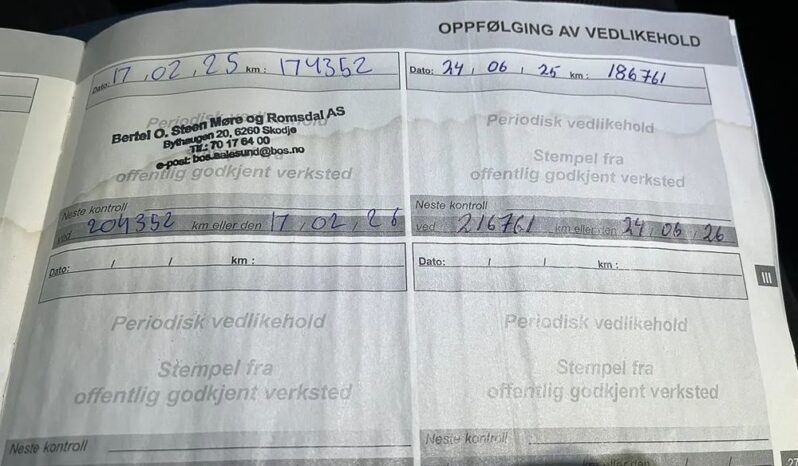 OPPFØLGING AV VEDLIKEHOLD
Dato: 17 , 02 , 25 km : 174352
Periodisk vedlikehold
Bertel O. Steen Møre og Romsdal AS
Bythaugen 20, 6260 Skodje
Tlf.: 70 17 64 00
e-post: bos.aalesund@bos.no
offentlig godkjent verksted
Neste kontroll
ved 204352 km eller den 17 , 02 , 26
Dato: 24 , 06 , 25 km : 186761
Periodisk vedlikehold
Stempel fra
offentlig godkjent verksted
Neste kontroll
ved 216761 km eller den 24 , 06 , 26
Dato: / / km :
Periodisk vedlikehold
Stempel fra
offentlig godkjent verksted
Neste kontroll
Dato: / / km :
Periodisk vedlikehold
Stempel fra
offentlig godkjent verksted
Neste kontroll
km eller den / /
III
27